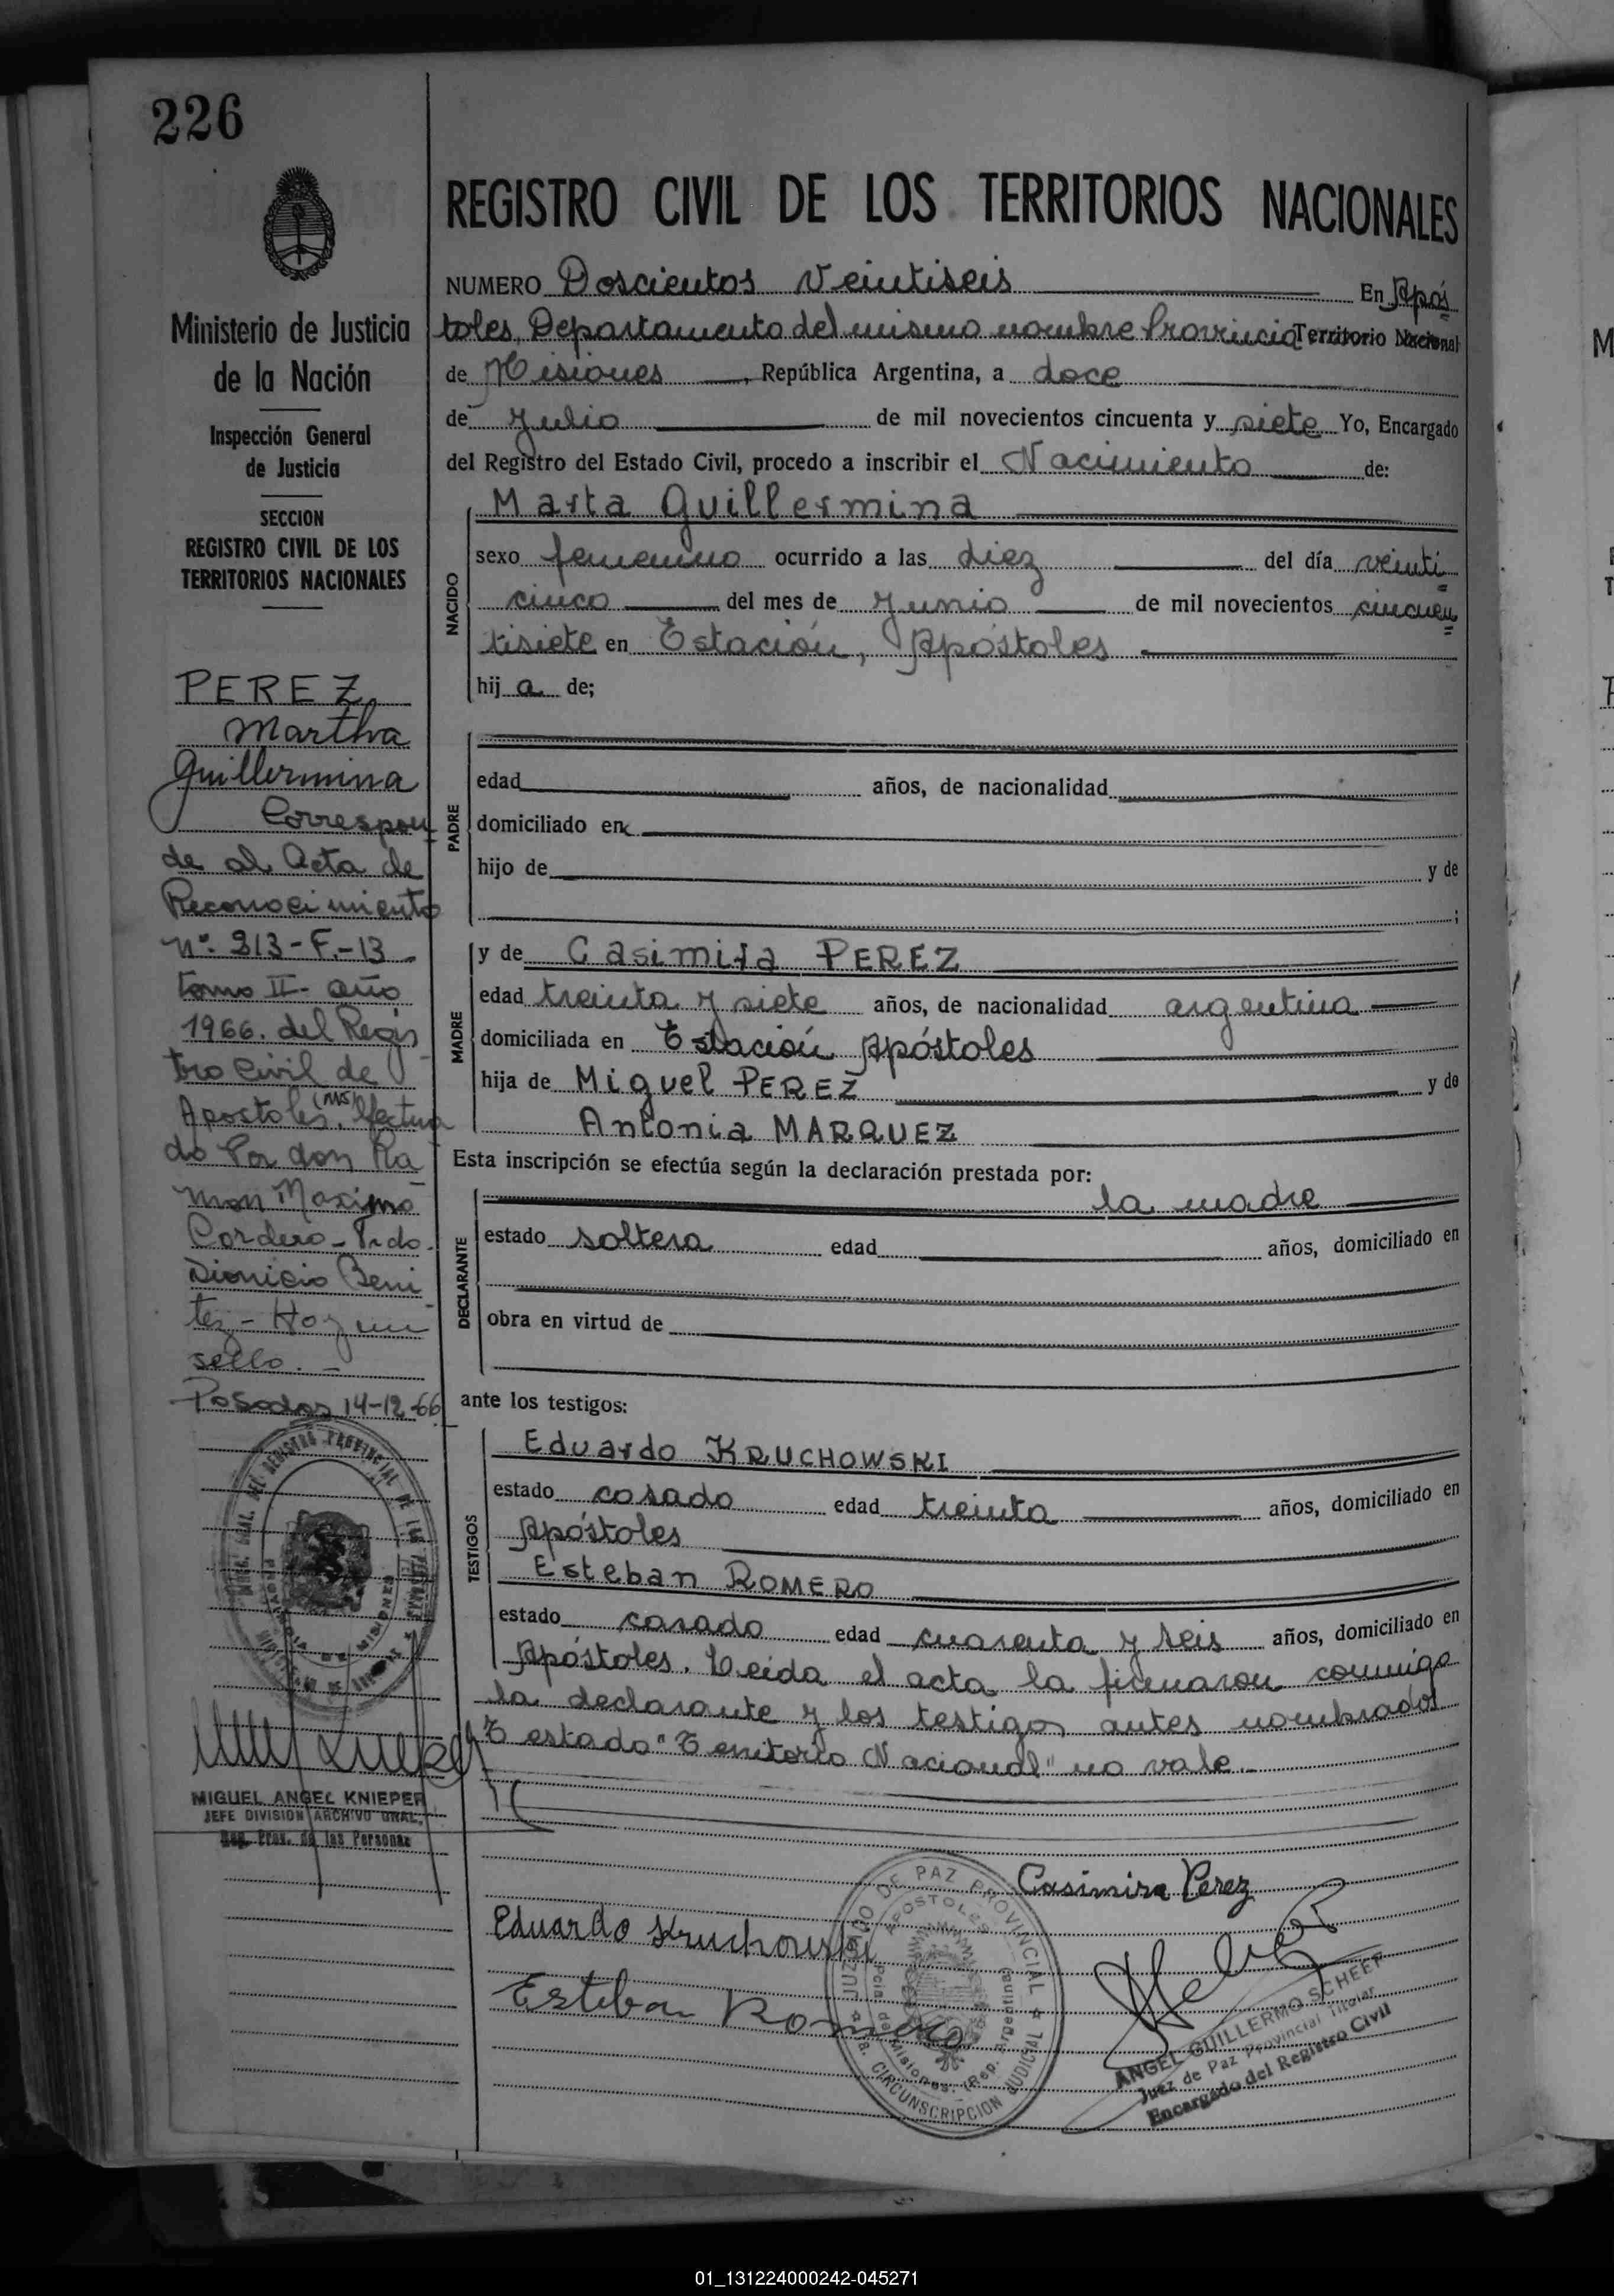 226
Ministerio de Justicia
de la Nación
Inspección General
de Justicia
SECCION
REGISTRO CIVIL DE LOS
TERRITORIOS NACIONALES
PEREZ,
Martha
Guillermina
Correspon
de al Acta de
Reconocimiento
Nº 213-F.-13
tomo II- año
1966. del Regis
tro Civil de
Apostoles, (Ms) efectua
do Por don Ra
mon Maximo
Cordero - Fdo.
Dionicio Beni
tez - Hoy un
sello. -
Posadas 14-12-66
MIGUEL ANGEL KNIEPER
JEFE DIVISION ARCHIVO GRAL.
Reg. Prov. de las Personas
REGISTRO CIVIL DE LOS TERRITORIOS NACIONALES
NUMERO Doscientos Veintiseis En Após
toles, Departamento del mismo nombre Provincia Territorio Nacional
de Misiones, República Argentina, a doce
de Julio de mil novecientos cincuenta y siete Yo, Encargado
del Registro del Estado Civil, procedo a inscribir el Nacimiento de:
NACIDO
Marta Guillermina
sexo femenino ocurrido a las diez del día veinti
cinco del mes de Junio de mil novecientos cincuen
tisiete en Estación, Apóstoles
hij a de;
PADRE
edad años, de nacionalidad
domiciliado en
hijo de y de
;
MADRE
y de Casimira PEREZ
edad treinta y siete años, de nacionalidad argentina
domiciliada en Estación Apóstoles
hija de Miguel PEREZ y de
Antonia MARQUEZ
Esta inscripción se efectúa según la declaración prestada por:
DECLARANTE
la madre
estado soltera edad años, domiciliado en
obra en virtud de
ante los testigos:
TESTIGOS
Eduardo KRUCHOWSKI
estado casado edad treinta años, domiciliado en
Apóstoles
Esteban ROMERO
estado casado edad cuarenta y seis años, domiciliado en
Apóstoles. Leida el acta la firmaron conmigo
la declarante y los testigos antes nombrados
Testado "Territorio Nacional" no vale.-
Casimira Perez
Eduardo Kruchowski
Esteban Romero
JUZGADO DE PAZ PROVINCIAL
APOSTOLES
Pcia de Misiones. (Rep. Argentina)
CIRCUNSCRIPCION JUDICIAL
ANGEL GUILLERMO SCHEEF
Juez de Paz Provincial Titular
Encargado del Registro Civil
01_131224000242-045271